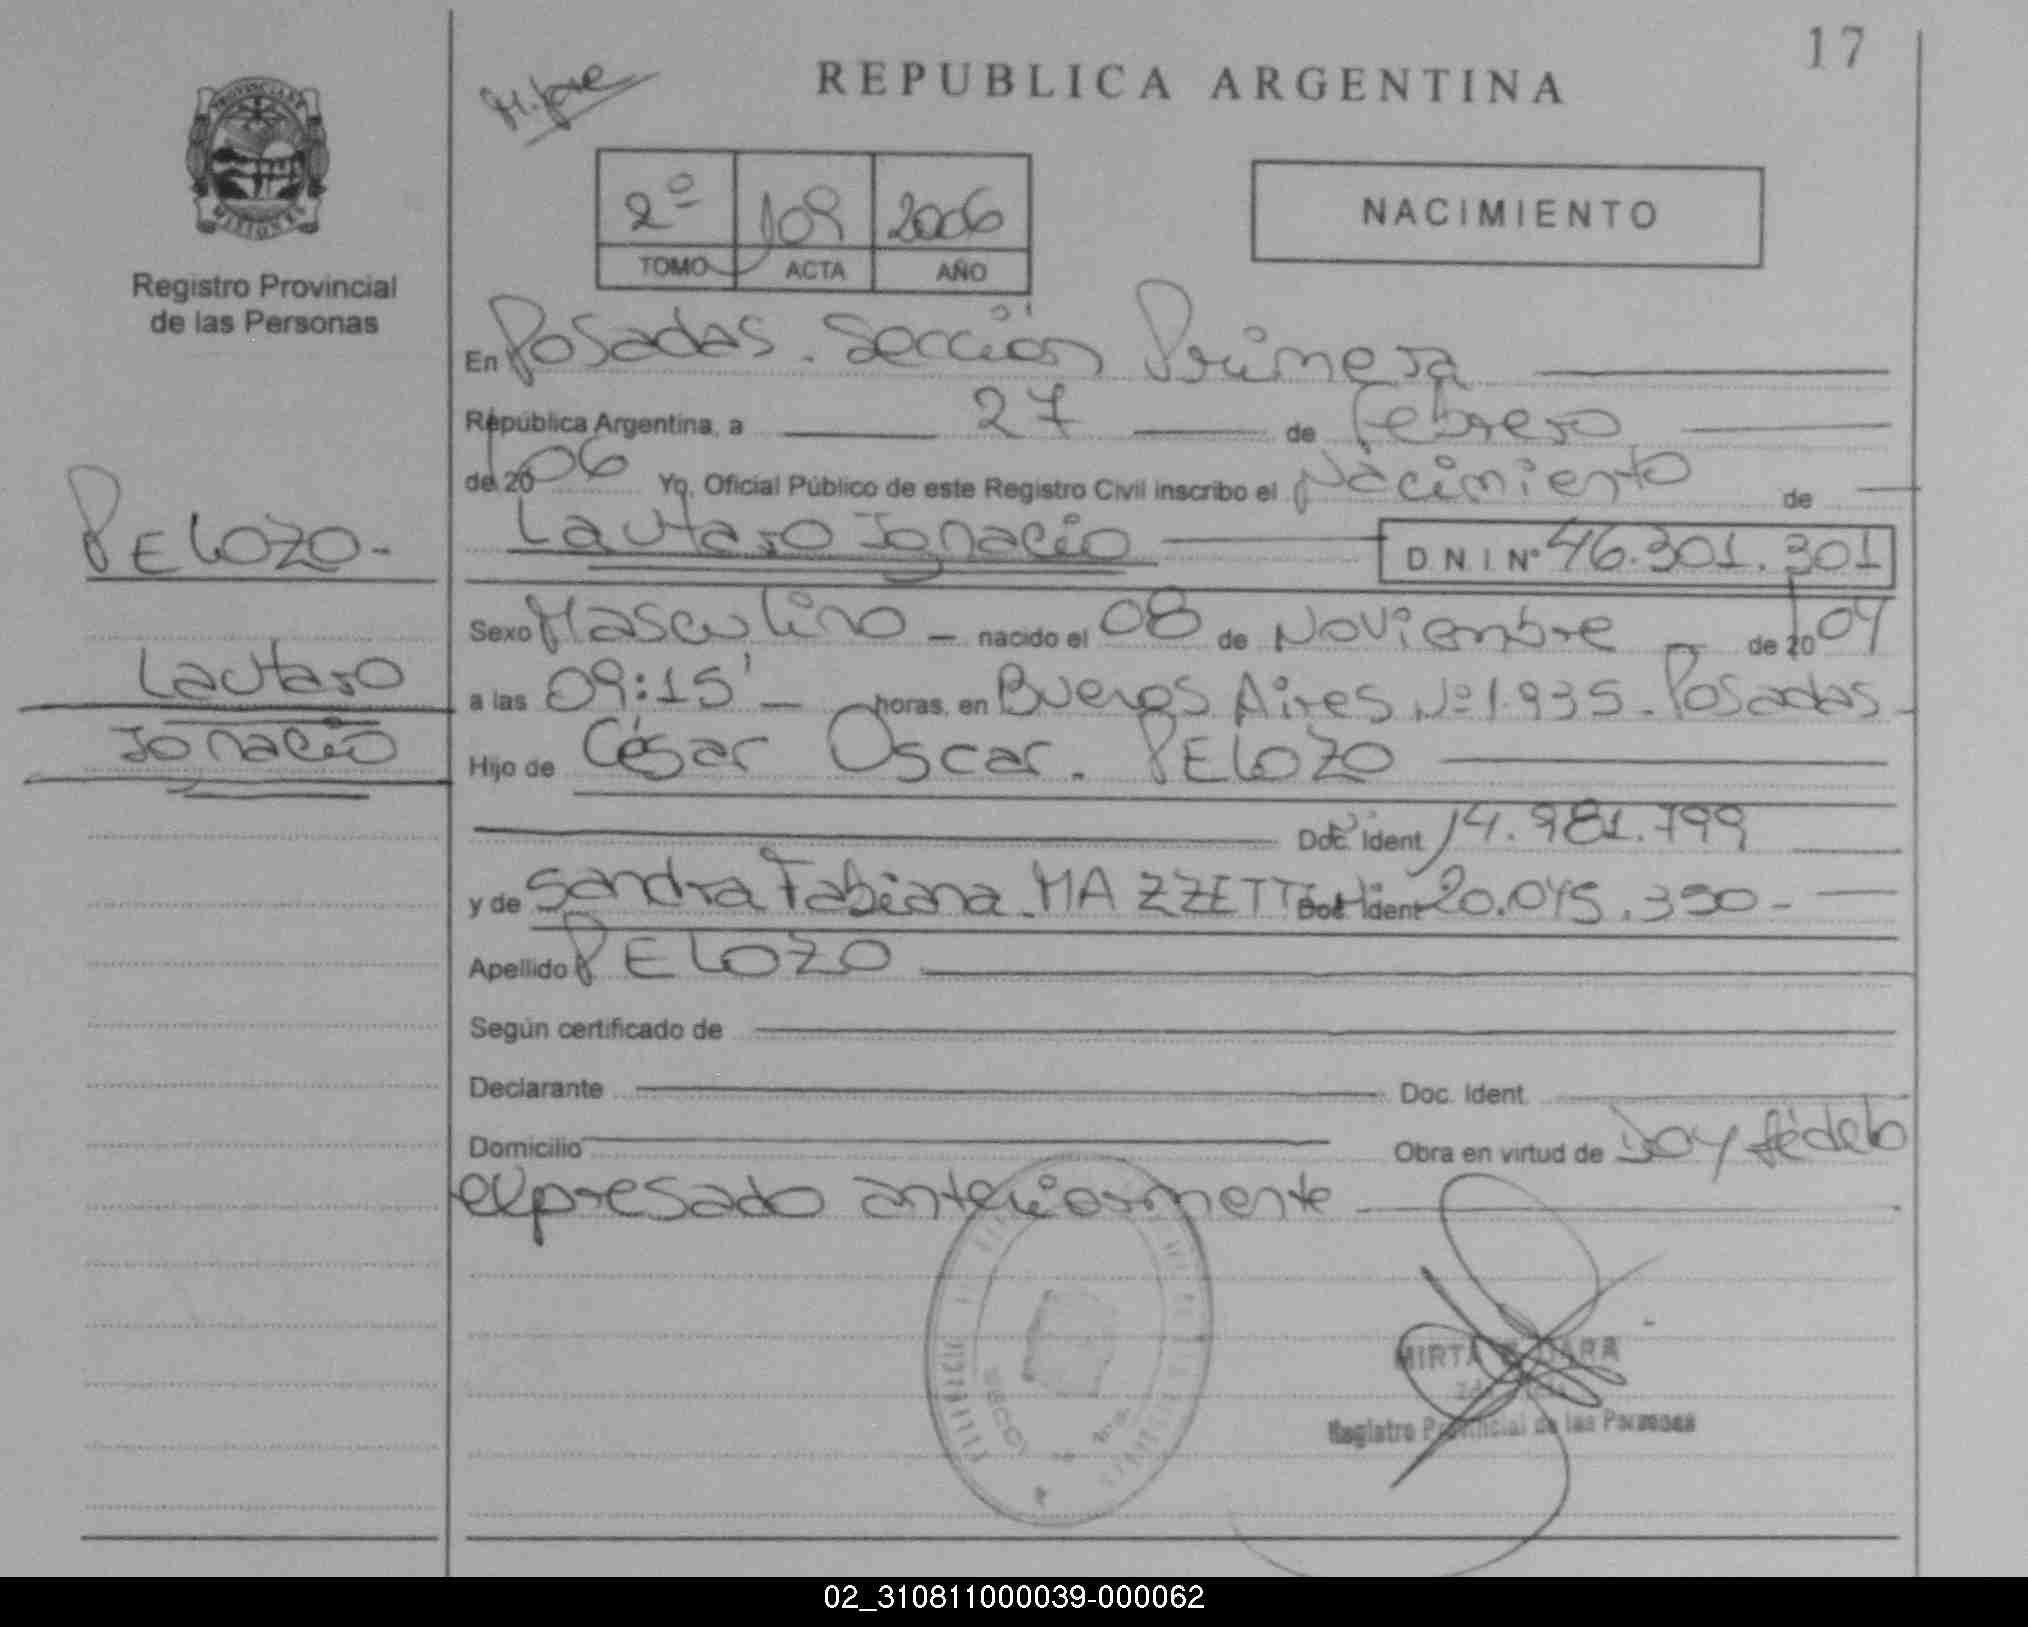 17
REPUBLICA ARGENTINA
M. José
PROVINCIA DE
MISIONES
Registro Provincial
de las Personas
2º 109 2006
TOMO ACTA AÑO
NACIMIENTO
En Posadas. Sección Primera
República Argentina, a 27 de Febrero
de 2006 Yo, Oficial Público de este Registro Civil inscribo el Nacimiento de
PELOZO-
Lautaro Ignacio D.N.I Nº 46.301.301
Sexo Masculino nacido el 08 de Noviembre de 2004
Lautaro
a las 09:15' horas, en Buenos Aires Nº 1.935. Posadas
Ignacio
Hijo de César Oscar. PELOZO
Doc. Ident 14.981.799
y de Sandra Fabiana MAZZETTI Doc. Ident 20.045.390-
Apellido PELOZO
Según certificado de
Declarante Doc. Ident.
Domicilio Obra en virtud de Doy fé de lo
expresado anteriormente
MIRTA
Registro Provincial de las Personas
02_310811000039-000062